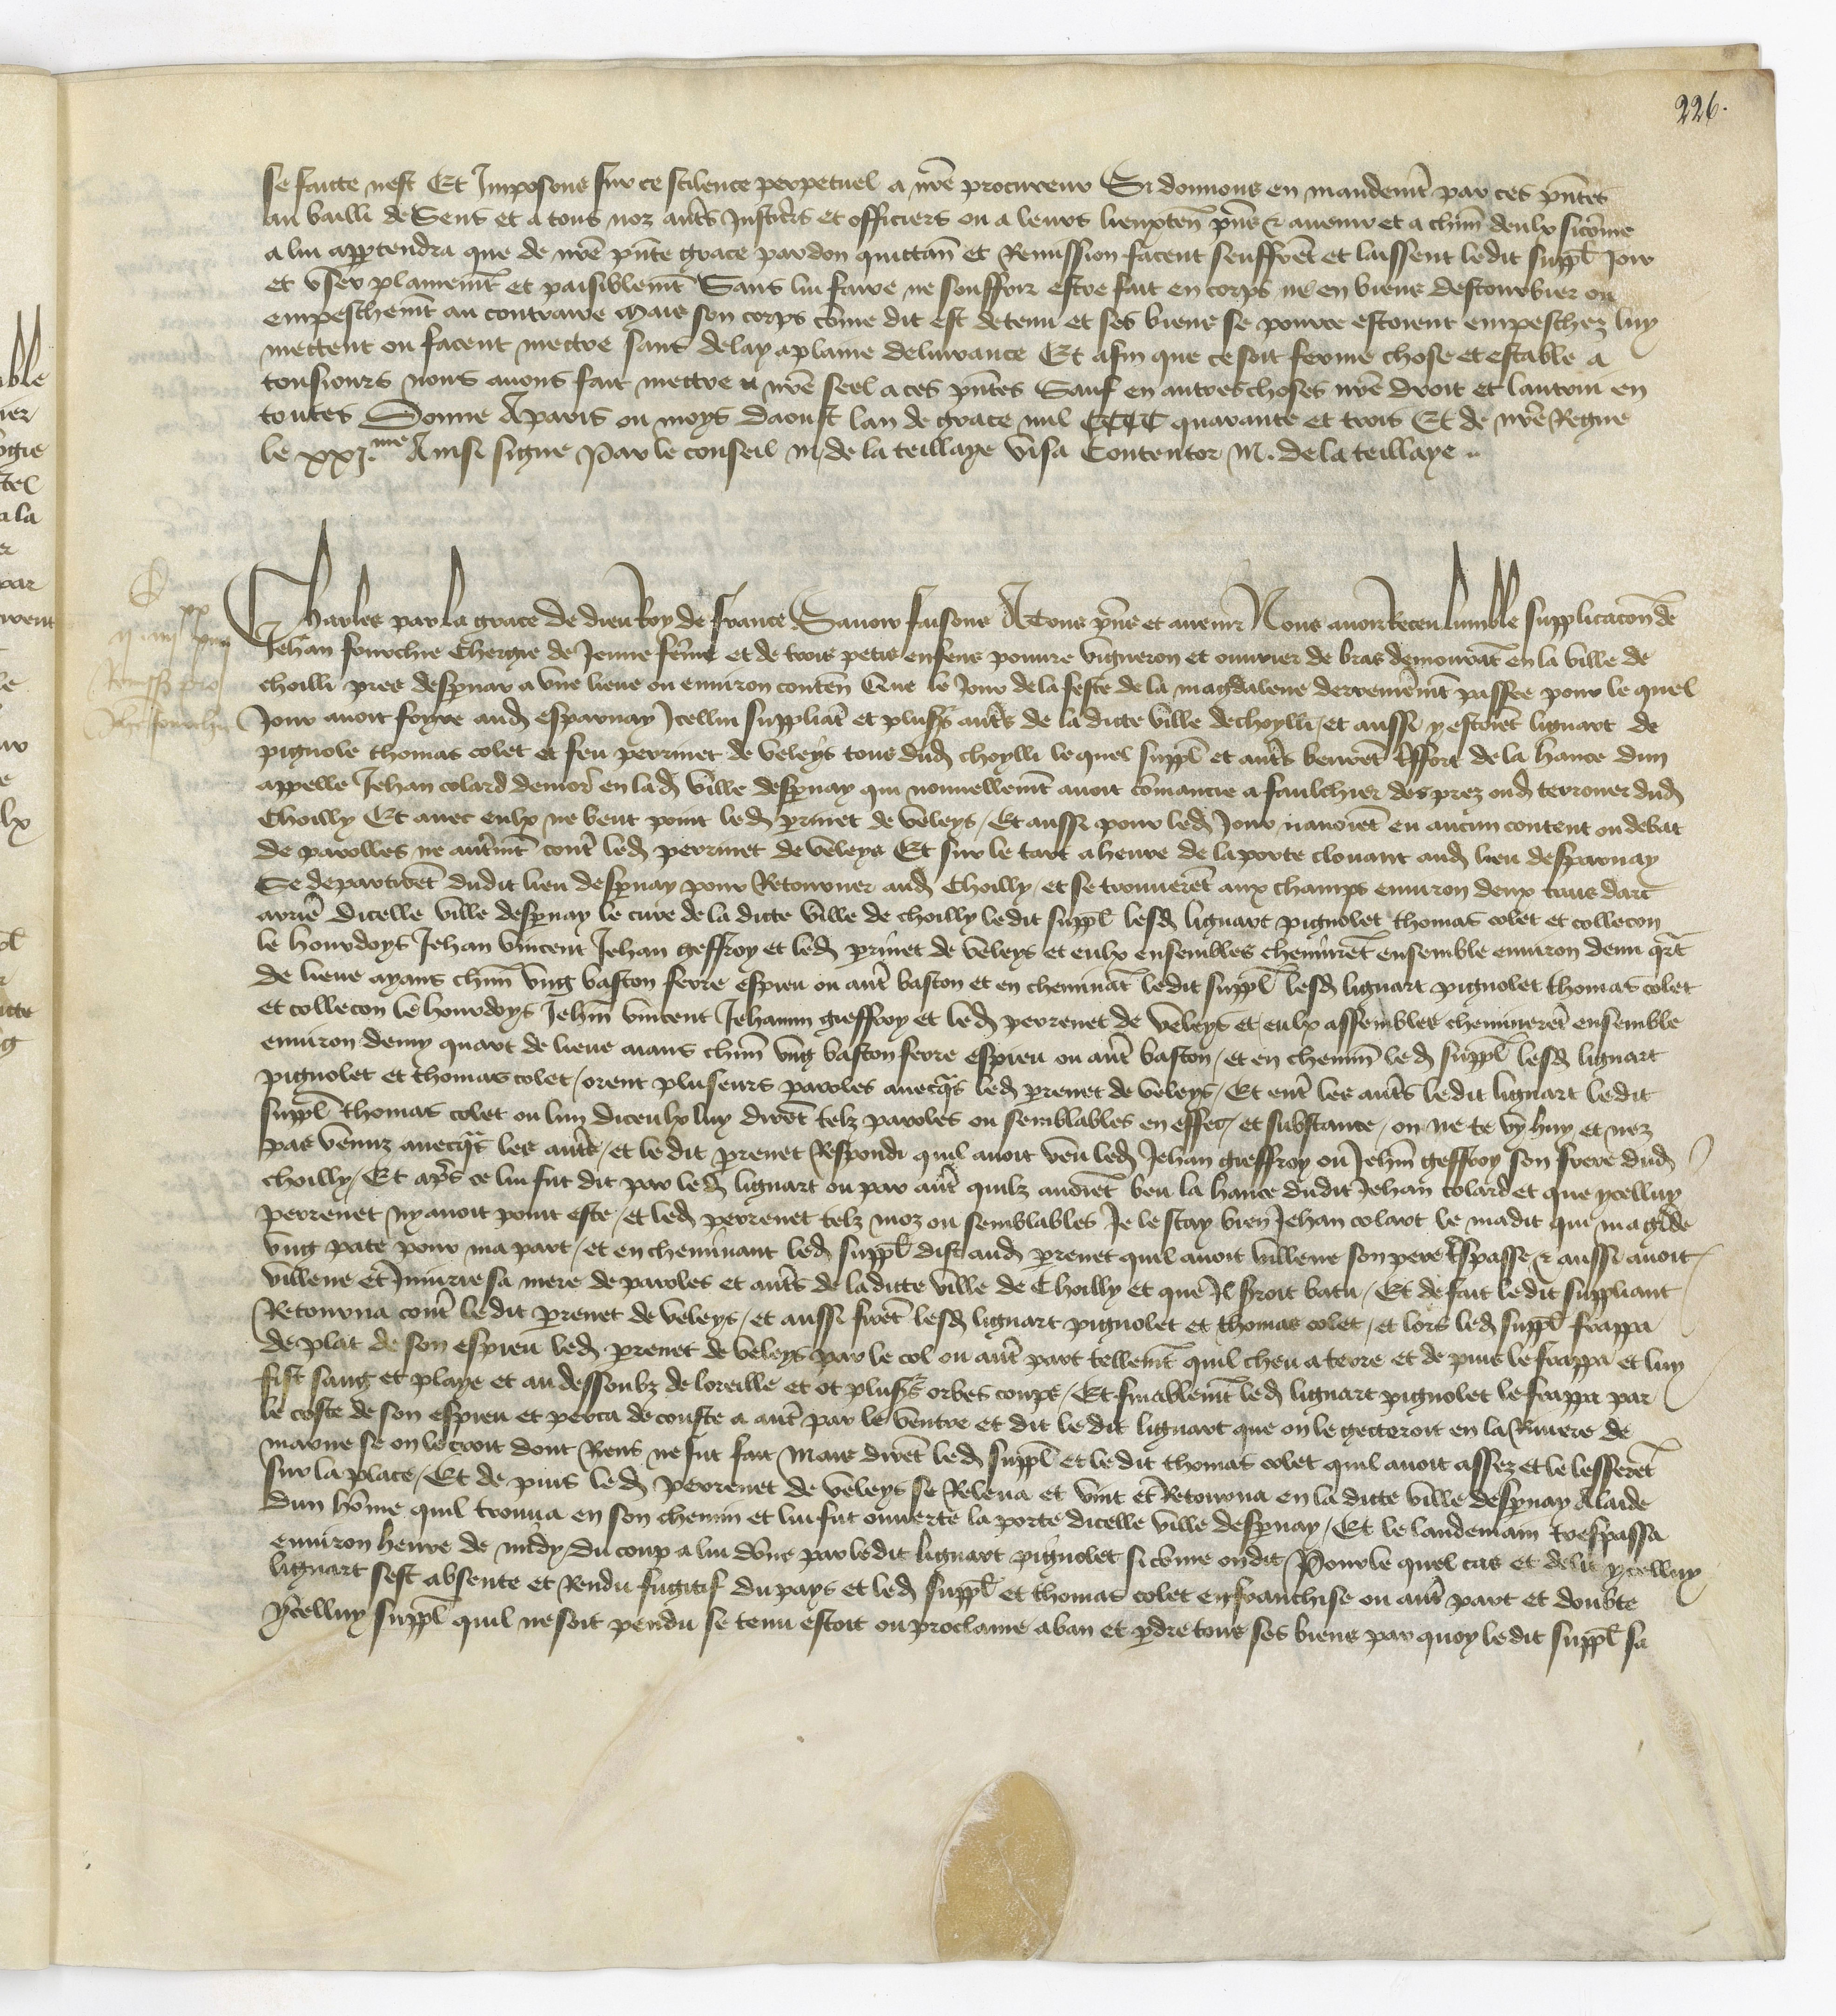 226.
se faicte nest Et Imposons sur ce scilence perpetuel a nre procureur Si donnons en mandemt par ces pntes
au bailli de Sens et a tous noz autrs Justicrs et officiers ou a leurs lieuxten pns & auenir et a chun deulx sicome
a lui appartendra que de nre pnte grace pardon quittan et Remission facent seuffret et laissent ledit suppl Joir
et vser plainemt et paisiblemt Sans lui faire ne souffrir estre fait en corps ne en biens destourbier ou
empeschemt au contraire Mais son corps come dit est detenu et ses biens se pource estoient empeschez luy
mettent ou facent mectre sans delay a plaine deliurance Et afin que ce soit ferme chose et estable a
tousiours nous auons fait mettre nre seel a ces pntes Sauf en autres choses nre droit et lautrui en
toutes Donne A paris ou moys daoust lan de grace mil CCCC quarante et trois Et de nre Regne
le xxj.me Ainsi signe Par le conseil M. de la teillaye visa Contentor M. de la teillaye
Charles par la grace de dieu Roy de france Sauoir faisons A tous pns et auenir Nous auoir Receu lumble supplicacon de
Jehan fourchie chergie de Jenne feme et de trois petis enfens poure vigneron et ouurier de bras demourat en la ville de
choilli pres desparnay a vne lieue ou enuiron conten Que le Jour de la feste de la magdalene derreniemt passee pour le quel
Jour auoit foyre aud esparnay Icellui suppliat et plusrs autrs de la dicte ville de choylli, et aussi y estoiet liguart de
pignole thomas colet et feu perrinet de veleys tous dud choylli le quel suppl et autrs beurent de la hance dun
appelle Jehan colard demor en lad ville despnay qui nouuellemt auoit comancie a faulchier des prez oud terrouer dud
Choilly Et auec eulx ne beut point led prinet de veleys, Et aussi pour led Jour nauoiet eu aucun content ou debat
de parolles ne autrmt contr led perrinet de veleys Et sur le tart a heure de la porte clouant aud lieu desparnay
Se departiret dudit lieu despnay pour Retourner aud Choilly, et se trouueret aux champs enuiron deux traiz darc
arrie dicelle ville despnay le cure de la dicte ville de choilly ledit suppl lesd liguart pignolet thomas colet et collecon
le hourdoys Jehan vincent Jehan geffroy et led prinet de veleys et eulx ensembles chemineret ensemble enuiron demi qrt
de lieue ayans chun vng baston ferre espieu ou autr baston et en cheminat ledit suppl lesd liguart pignolet thomas colet
et collecon le hourdoys Jehan vincent Jehannin gieffroy et led perrenet de veleys et eulx assembles chemineret ensemble
enuiron demy quart de lieue aians chun vng baston ferre espieu ou autr baston, et en chemin led suppl lesd liguart
pignolet et thomas colet, orent pluseurs paroles auecqs led prenet de veleys, Et entr les autrs ledit liguart ledit
suppl thomas colet ou lun diceulx luy diret telz paroles ou semblables en effec, et substance, on ne te vy huy et nez
pas venuz auecqs les autrs, et le dit prenet Respondi quil auoit veu led Jehan gieffroy ou Jehan geffroy son frere dud
choilly, Et aprs ce lui fut dit par led liguart ou par autr quilz auoiet beu la hance dudit Jehan colard et que ycelluy
perrenet ny auoit point este, et led perrenet telz moz ou semblables Je le scay bien Jehan colart le madit qui ma garde
vng pate pour ma part, et en cheminant led suppl dist aud prenet quil auoit villene son pere trspasse & aussi auoit
villene et Iniurie sa mere de paroles et autrs de ladicte ville de Choilly et que Il sroit batu, Et de fait ledit suppliant
Retourna contr ledit prenet de veleys, et aussi firet lesd liguart pignolet et thomas colet, et lors led suppl frappa
de plat de son espieu led prenet de veleys par le col ou autr part tellemt quil cheu a terre et de puis le frappa et luy
fist sang et playe et au dessoubz de loreille et ot plusrs orbes coups, Et finablemt led liguart pignolet le frappa par
le coste de son espieu et perca de couste a autr par le ventre et dit ledit liguart que on le gecteroit en la Riuiere de
marne se on le croit dont Riens ne fut fait Mais diret led suppl et ledit thomas colet quil auoit assez et le lesseret
sur la place, Et de puis led Perrenet de veleys se Releua et vint et Retourna en ladicte ville despnay A laide
dun home quil trouua en son chemin et lui fut ouuerte la porte dicelle ville despnay, Et le landemain trespassa
enuiron heure de midy, du coup a lui done par ledit liguart pignolet si come on dit Pour le quel cas et delit ycelluy
liguart sest absente et Rendu fugitif du pays et led suppl et thomas colet en franchise ou autr part et doubte
ycelluy suppl quil ne soit pendu se tenu estoit ou proclame a ban et pdre tous ses biens par quoy ledit suppl sa